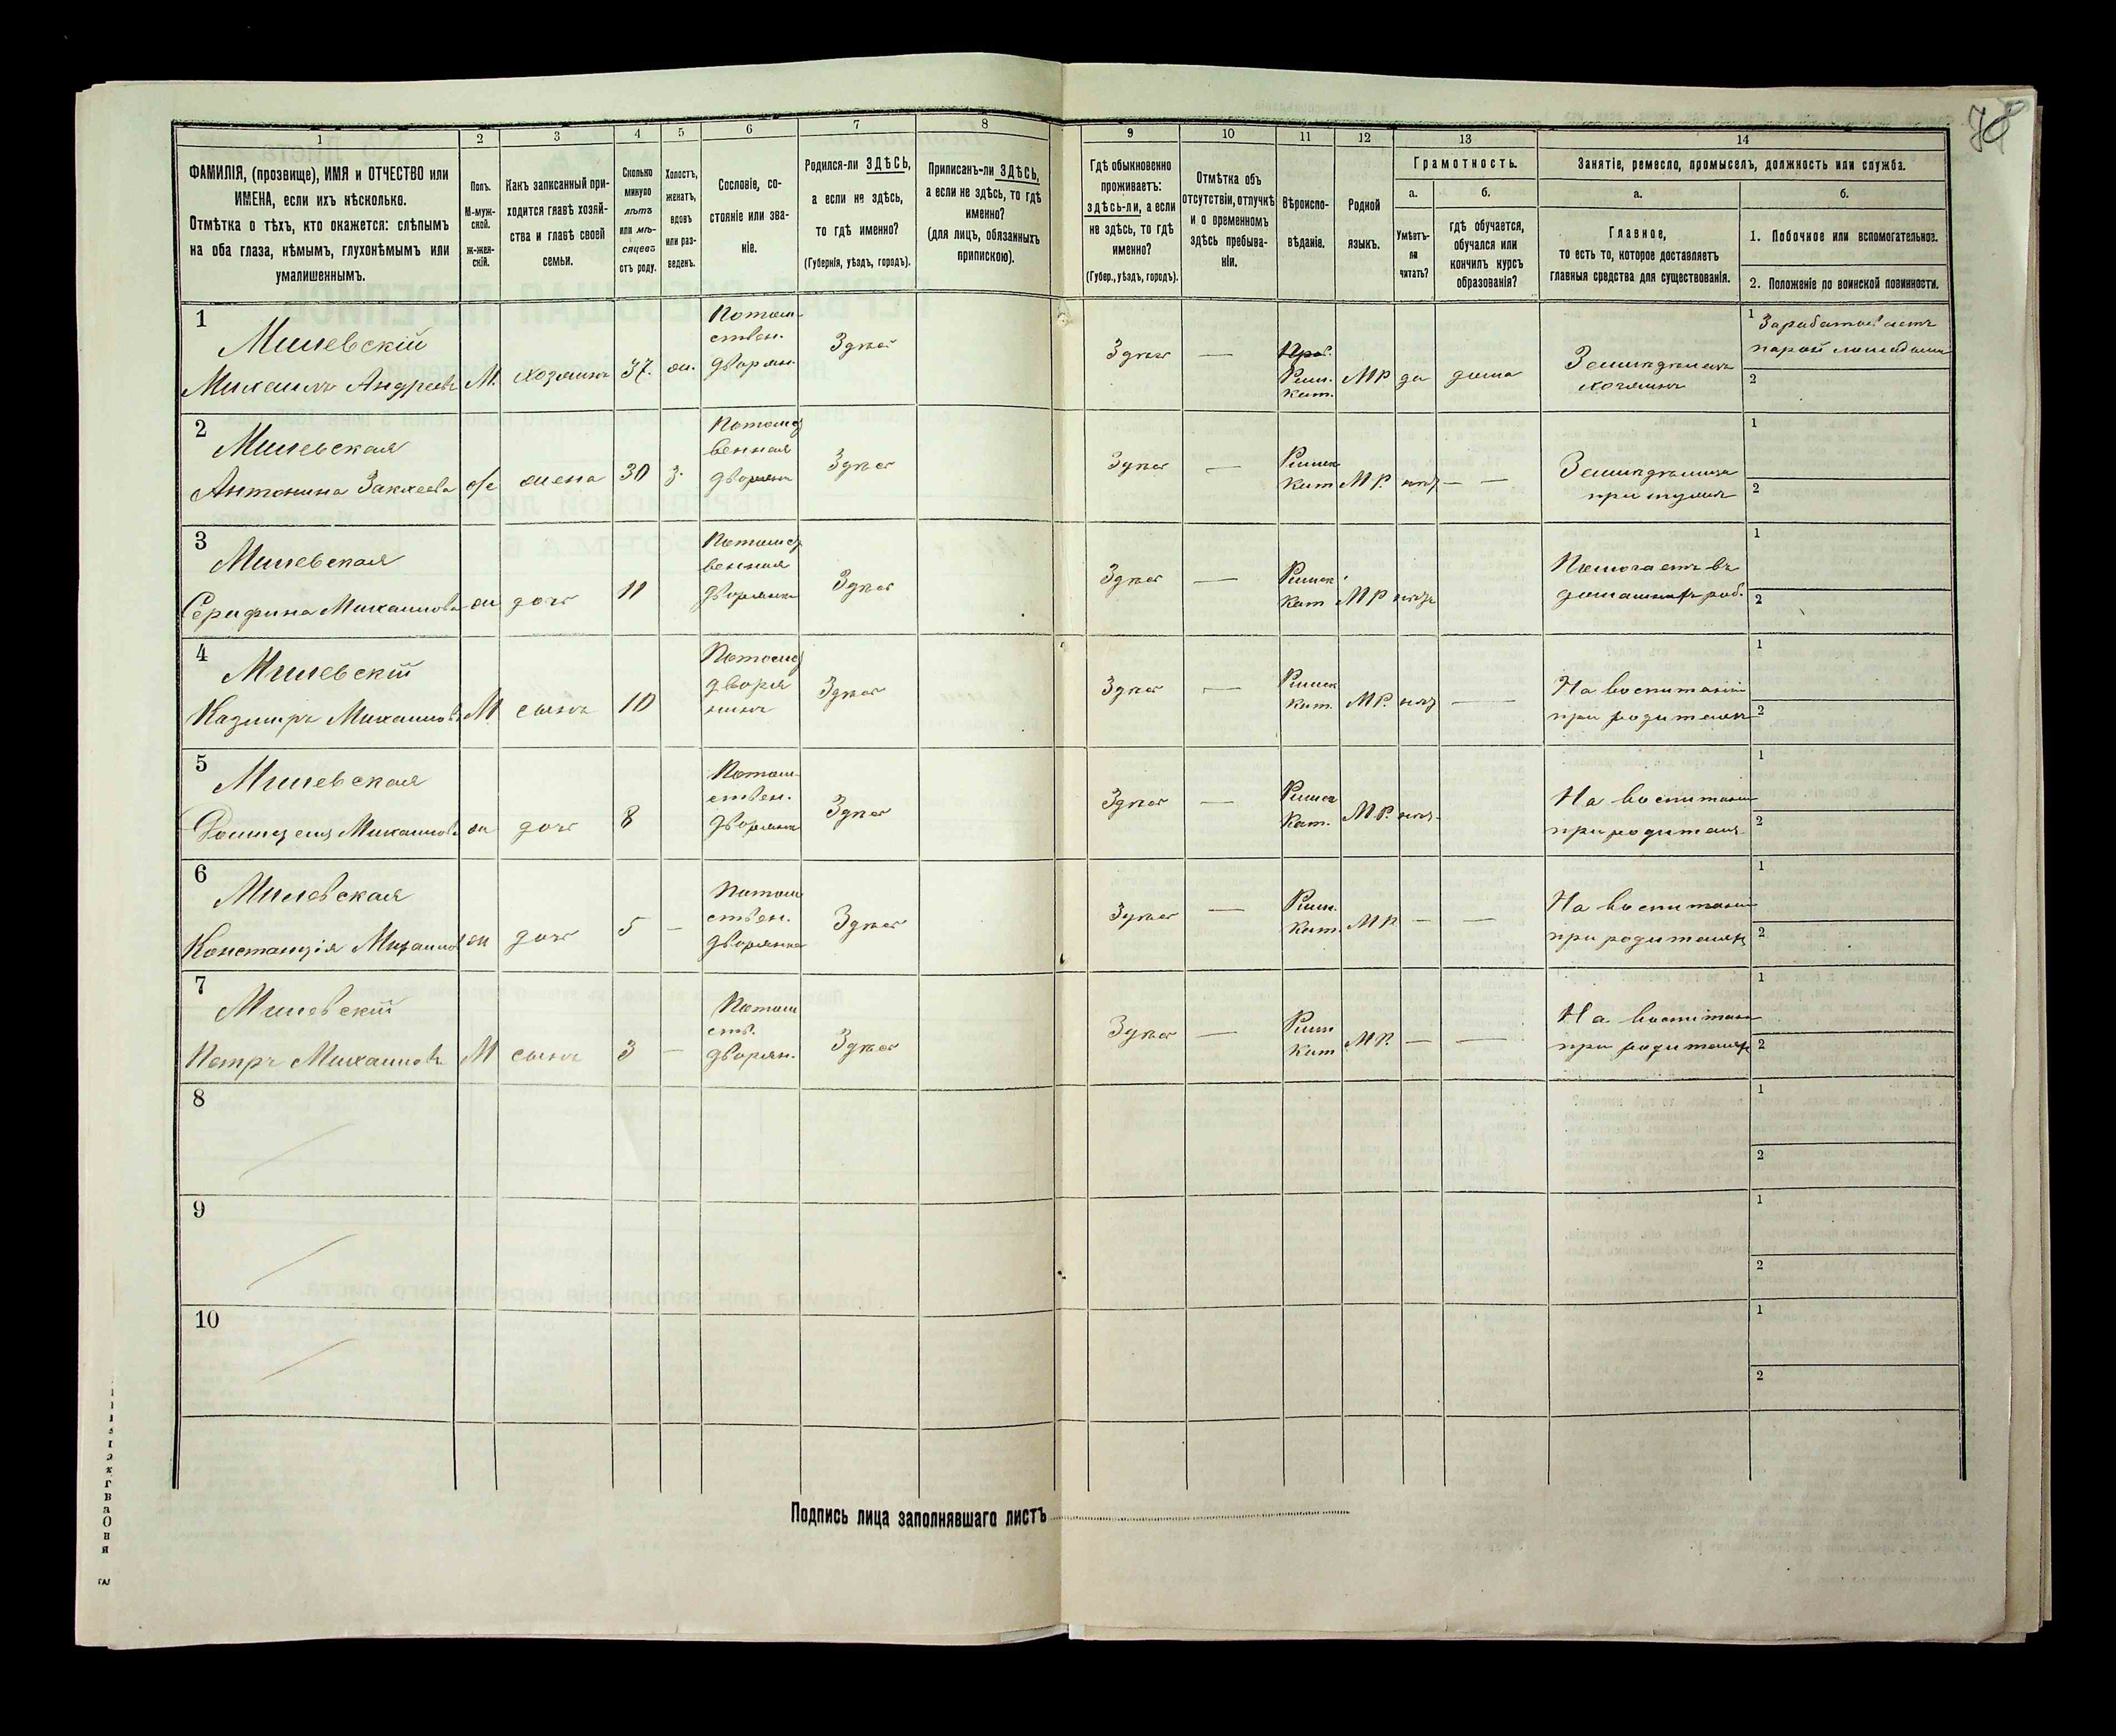 78
1 2 3 4 5 6 7 8 9 10 11 12 13 14
ФАМИЛІЯ, (прозвище), ИМЯ и ОТЧЕСТВО или
ИМЕНА, если ихъ нѣсколько.
Отмѣтка о тѣхъ, кто окажется: слѣпымъ
на оба глаза, нѣмымъ, глухонѣмымъ или
умалишеннымъ.
Полъ.
М-муж-
ской.
ж-жен-
скій.
Какъ записанный при-
ходится главѣ хозяй-
ства и главѣ своей
семьи.
Сколько
минуло
лѣтъ
или мѣ-
сяцевъ
отъ роду.
Холостъ,
женатъ,
вдовъ
или раз-
веденъ.
Сословіе, со-
стояніе или зва-
ніе.
Родился-ли ЗДѢСЬ,
а если не здѣсь,
то гдѣ именно?
(Губернія, уѣздъ, городъ).
Приписанъ-ли ЗДѢСЬ,
а если не здѣсь, то гдѣ
именно?
(для лицъ, обязанныхъ
припискою).
Гдѣ обыкновенно
проживаетъ:
здѣсь-ли, а если
не здѣсь, то гдѣ
именно?
(Губер., уѣздъ, городъ).
Отмѣтка объ
отсутствіи, отлучкѣ
и о временномъ
здѣсь пребыва-
ніи.
Вѣроиспо-
вѣданіе.
Родной
языкъ.
Грамотность.
а.
Умѣетъ-
ли
читать?
б.
гдѣ обучается,
обучался или
кончилъ курсъ
образованія?
Занятіе, ремесло, промыселъ, должность или служба.
а.
Главное,
то есть то, которое доставляетъ
главныя средства для существованія.
б.
1. Побочное или вспомогательное.
2. Положеніе по воинской повинности.
1
Милевскій
Михаилъ Андреевъ М. хозяинъ 37. ж.
Потом-
ствен.
дворян.
Здѣсь
Здѣсь —
Прав.
Рим.
Кат.
МР да дома
Земледѣлецъ
хозяинъ
1 Зарабатываетъ
парой лошадьми
2
2
Милевская
Антонина ж жена 30 з.
Потомст
венная
дворянк
Здѣсь
Здѣсь —
Римск
Кат МР. нѣт — —
Земледѣлица
при мужѣ
1
2
3
Милевская
Серафина Михаилова ж дочь 11
Потомст
венная
дворянка
Здѣсь
Здѣсь —
Римск
Кат МР нѣтъ
Помогаетъ въ
домашнѣ раб.
1
2
4
Милевскій
Казимръ Михаиловъ М сынъ 10
Потомст
дворя
нинъ
Здѣсь
Здѣсь —
Римск
Кат. МР. нѣт —
На воспитаніи
при родителях
1
2
5
Милевская
Михаилова ж дочь 8
Потом-
ствен.
дворянка
Здѣсь
Здѣсь —
Римск
Кат. МР. нѣт.
На воспитани
при родителя
1
2
6
Милевская
Констанція Михаилов ж дочь 5 —
Потом
ствен.
дворянка
Здѣсь
Здѣсь —
Рим.
Кат. МР — —
На воспитани
при родителях
1
2
7
Милевскій
Петръ Михаиловъ М сынъ 3 —
Потом
ств.
дворян.
Здѣсь
Здѣсь —
Рим
Кат МР. — —
На воспитани
при родителях
1
2
8
1
2
9
1
2
10
1
2
Подпись лица заполнявшаго листъ